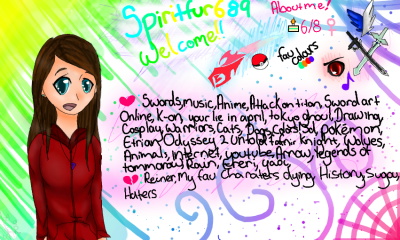 Spiritfur689
Welcome!!
About me!
6/8 ♀
fav
colors
Swords, music, Anime, Attack on titan, Sword art
Online, K-on, your lie in april, tokyo ghoul, Drawing,
Cosplay, Warriors, Cats, Dogs, Colors! 3d, pokémon,
Etrian Odyssey 2 Untold Fafnir Knight, Wolves,
Animals, internet, youtube, Arrow, legends of
tommorow, Rain,
Reiner, My fav Charaters dying, History,
Haters